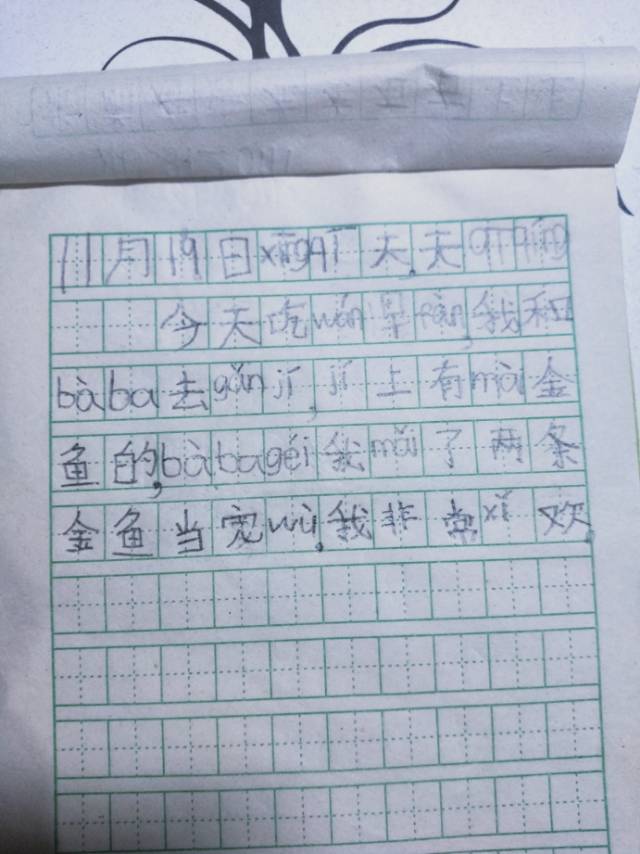 11月19日xīngqī天,天qíng
今天吃wán早fàn,我和
bàba去gǎnjí,jí上有mài金
鱼的,bàbagéi我mǎi了两条
金鱼当宠wù,我非常xǐ欢.